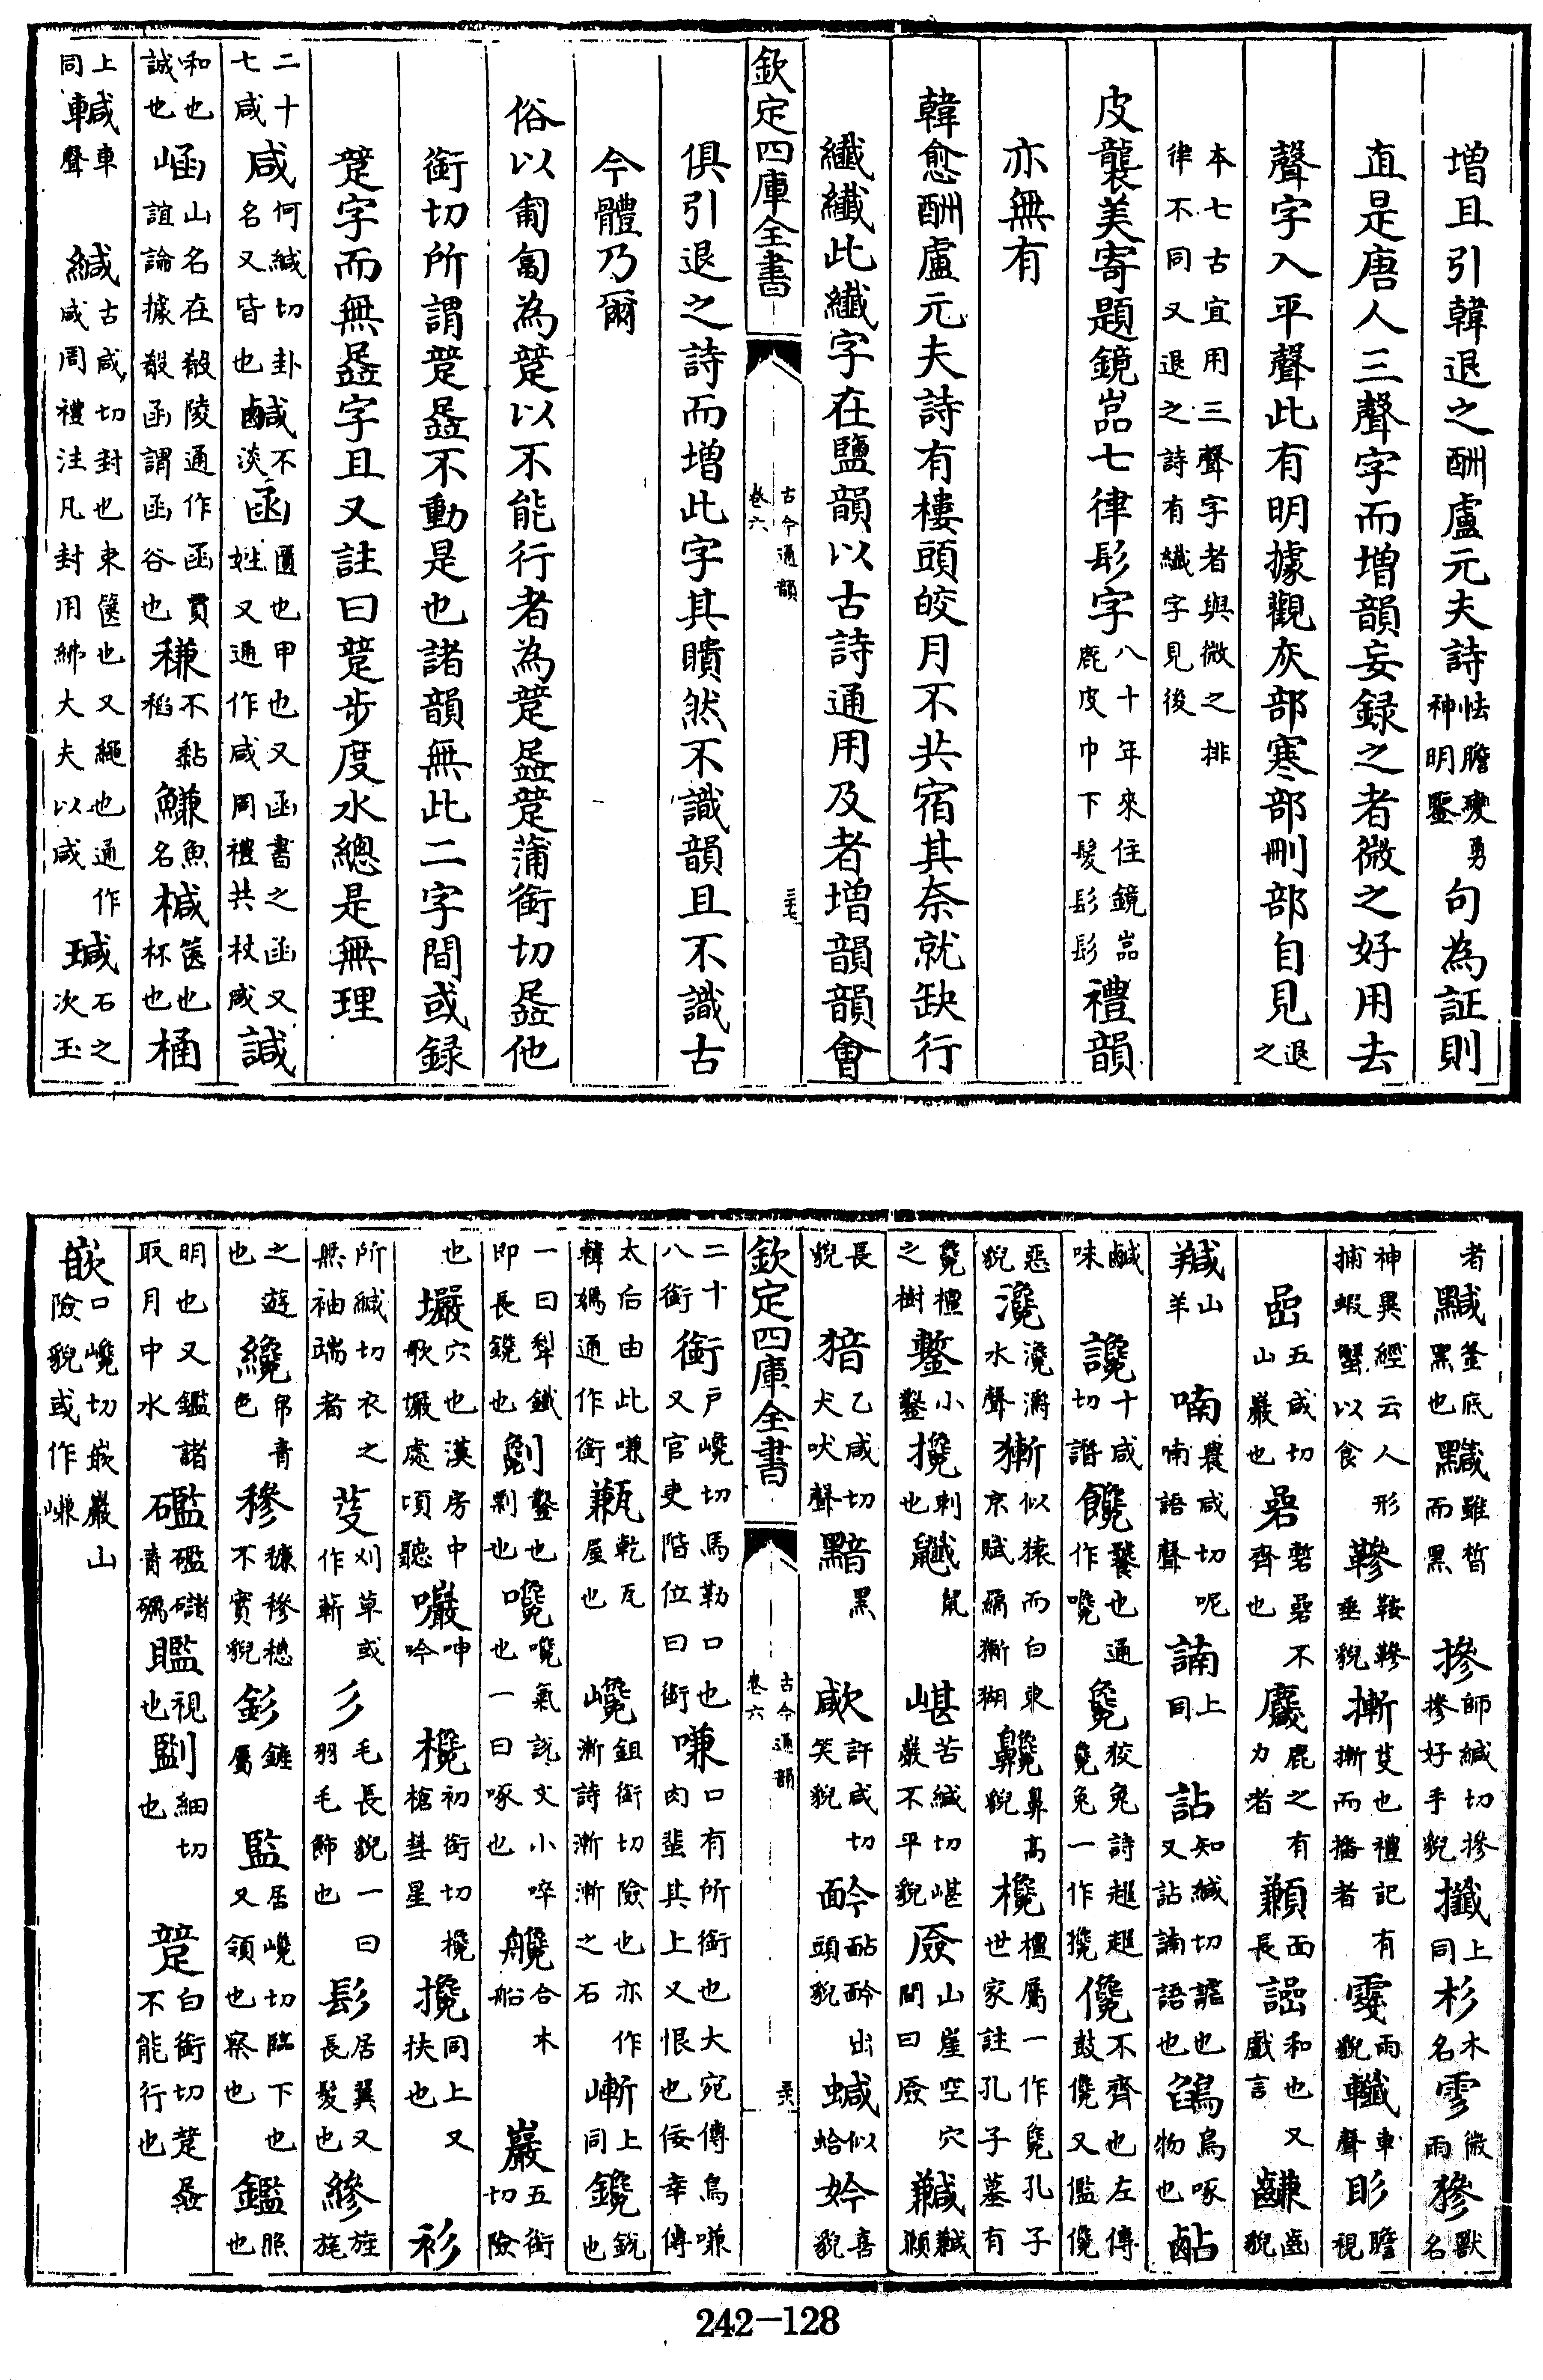 増且引韓退之酬盧元夫詩怯膽變勇神明鑒句為証則
直是唐人三聲字而増韻妄録之者微之好用去
聲字入平聲此有明據觀灰部寒部刪部自見退之
本七古宜用三聲字者與微之排律不同又退之詩有纖字見後
皮襲美寄題鏡嵓七律髟字八十年來住鏡嵓鹿皮巾下髮髟髟禮韻
亦無有
韓愈酬盧元夫詩有樓頭皎月不共宿其奈就缺行
纖纖此纖字在鹽韻以古詩通用及者増韻韻會
欽定四庫全書 古今通韻 卷六
俱引退之詩而増此字其瞶然不識韻且不識古
今體乃爾
俗以匍匐為踅以不能行者為踅䟫踅蒲銜切䟫他
銜切所謂踅䟫不動是也諸韻無此二字間或録
踅字而無䟫字且又註曰踅步度水總是無理
二十七咸咸何緘切卦名又皆也鹹不淡函匱也甲也又函書之函又姓又通作咸周禮共杖咸諴
和也誠也崡山名在殽陵通作函賈誼論據殽函謂函谷也稴不黏稻鰜魚名椷篋也杯也桶
上同䡨車聲緘古咸切封也束篋也又繩也通作咸周禮注凡封用綍大夫以咸瑊石之次玉
者黬釜底黑也䵌雖晳而黑摻師緘切摻摻好手貌攕上同杉木名霎微雨獑獸名
神異經云人形捕蝦蟹以食鞖鞍鞖垂貌摲芟也禮記有摲而播者霎雨貌轞車聲䀐瞻視
嵒五咸切山巖也碞磛碞不齊也麙鹿之有力者䫡面長諵和也又戲言鹻齒貌
羬山羊喃農咸切呢喃語聲諵上同詀知緘切詀諵語也又䧟鳥啄物也鹷
鹹味讒士咸切譖饞饕也通作嚵毚狡兔詩趯趯毚兔一作㲋儳不齊也左傳鼓儳又儖儳
惡貌瀺瀺灂水聲獑似猿而白東京賦獑猢䶫鼻高貌欃檀屬一作毚孔子世家註孔子墓有
毚檀之樹鏨小鑿攙刺也鼸鼠嵁苦緘切嵁巖不平貌㕋山崖空穴間曰㕋䫡
長貌猎乙咸切犬吠聲黯黑㰹許咸切笑貌䩂䩂出頭貌蝛似蛤妗喜貌
欽定四庫全書 古今通韻 卷六
二十八銜銜戶嵌切馬勒口也又官吏階位曰銜嗛口有所銜也大宛傳烏嗛肉蜚其上又恨也佞幸傳
太后由此嗛韓嫣通作銜㼓屋乾瓦也巉鉏銜切險也亦作漸詩漸漸之石嶄上同鑱銳也
一曰犁鐵即長鑱也劖鑿也剽也嚵嚵氣說文小啐也一曰啄也艬合木船巖五銜切險
也壧穴也漢房中歌壧處頃聽㘙呻吟欃初銜切欃槍彗星攙同上又扶也衫
所緘切衣之無袖端者芟刈草或作𣂪彡毛長貌一曰羽毛飾也髟居翼又長髮也縿旌旄
之遊也纔帛青色穇穇穗不實貌釤鉦屬監居嵌切臨下也又領也察也鑑照也
明也又鑑諸取月中水礛礛䃴青礪䁩視也㔋細切也踅白銜切踅䟫不能行也
嵌口巉切嵌巖山險貌或作嵰
242-128